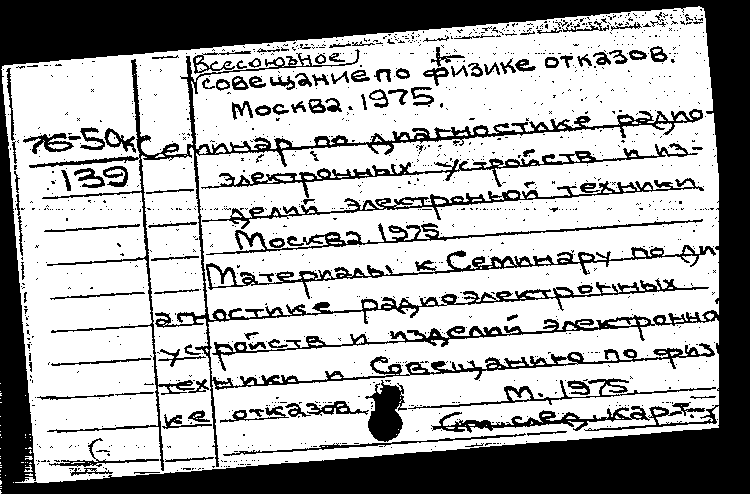 Всесоюзное
совещание по физике отказов.
Москва. 1975.
76-50к Семинар по диагностике радио-
139 электронных устройств и из-
делий электронной техники.
Москва. 1975
Материалы к Семинару по ди-
агностике радиоэлектронных
устройств и изделий электронно
техники и Совещанию по физи
ке отказов. М., 1975.
См след. карт-у